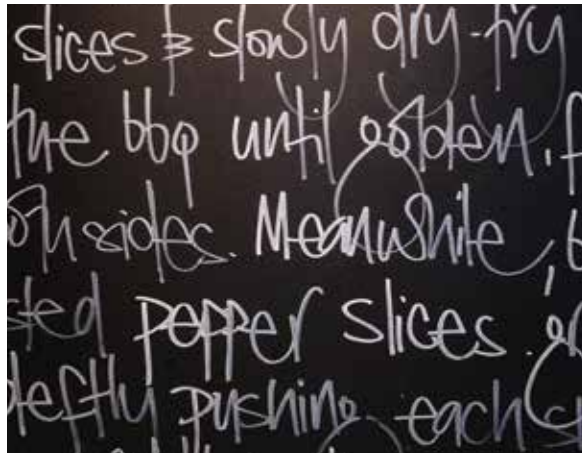 slices & slowly dry-fry
the bbq until golden, f
oth sides. Meanwhile, b
sted pepper slices. or
deftly pushing each s